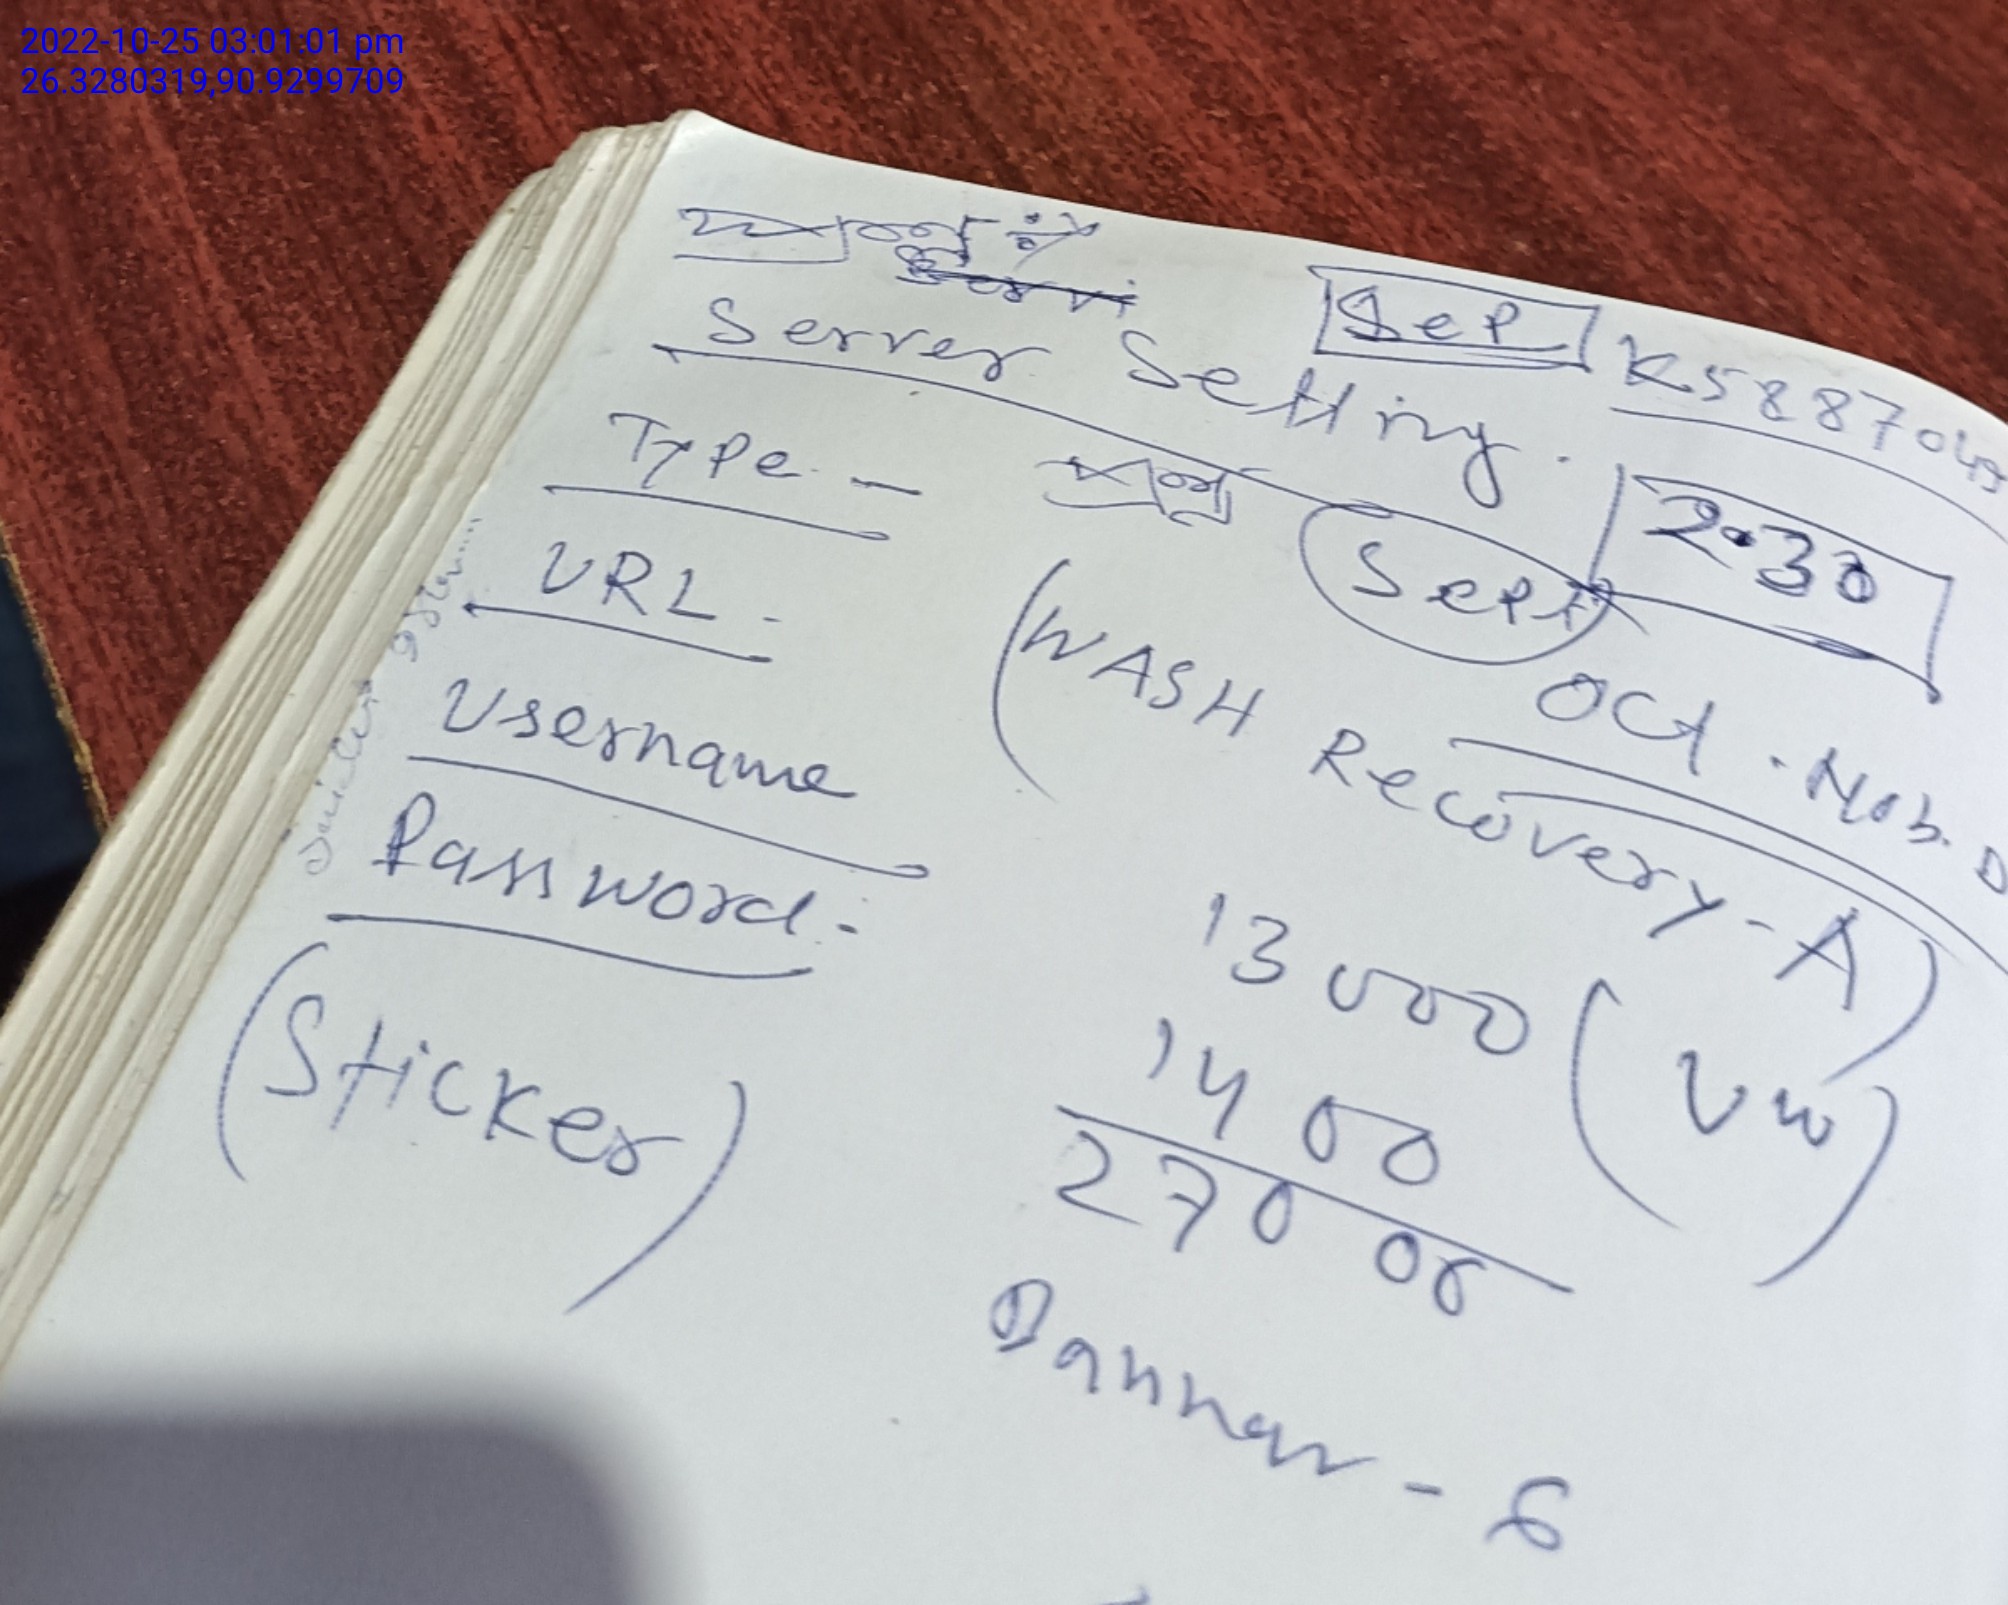 2022-10-25 03:01:01 pm
26.3280319,90.9299709
SeP
Server Setting.
Type. -
2.30
Sept
URL -
(WASH Recovery - A)
Oct. Nob. D
Username
Password :-
13000
(VW)
1400
(Sticker)
27000
Bannar - 6